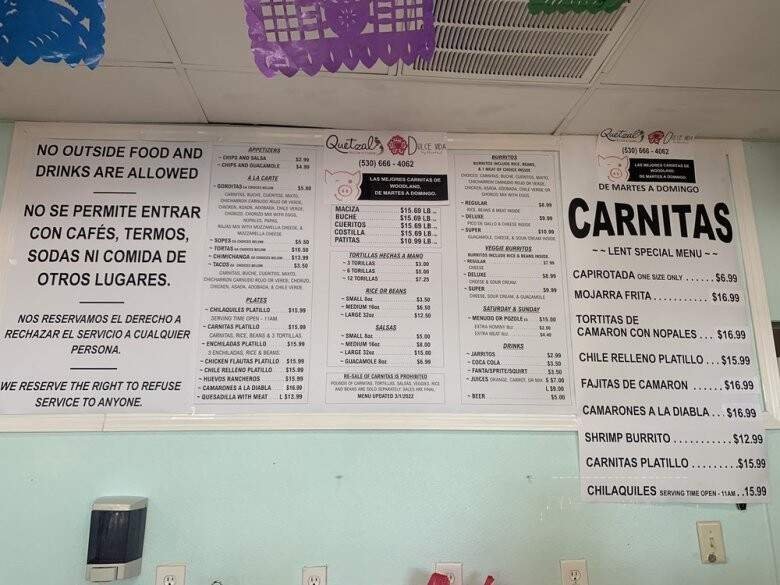 NO OUTSIDE FOOD AND
DRINKS ARE ALLOWED
NO SE PERMITE ENTRAR
CON CAFÉS, TERMOS,
SODAS NI COMIDA DE
OTROS LUGARES.
NOS RESERVAMOS EL DERECHO A
RECHAZAR EL SERVICIO A CUALQUIER
PERSONA.
WE RESERVE THE RIGHT TO REFUSE
SERVICE TO ANYONE.
APPETIZERS
~ CHIPS AND SALSA $2.99
~ CHIPS AND GUACAMOLE $4.99
A LA CARTE
~ GORDITAS $5.00
CARNITAS, BUCHE, CUERITOS, MIXTO,
CHICHARRON CARNUDO ROJO OR VERDE,
CHICKEN, ASADA, ADOBADA, CHILE VERDE,
CHORIZO, CHORIZO MIX WITH EGGS,
NOPALES, PAPAS,
RAJAS MIX WITH MOZZARELLA CHEESE, &
MOZZARELLA CHEESE
~ SOPES $5.50
~ TORTAS $10.50
~ CHIMICHANGA $13.99
~ TACOS $3.50
CARNITAS, BUCHE, CUERITOS, MIXTO,
CHICHARRON CARNUDO ROJO OR VERDE, CHORIZO,
CHICKEN, ASADA, ADOBADA, & CHILE VERDE
PLATES
~ CHILAQUILES PLATILLO $15.99
SERVING TIME OPEN - 11AM
~ CARNITAS PLATILLO $15.99
CARNITAS, RICE, BEANS & 3 TORTILLAS
~ ENCHILADAS PLATILLO $15.99
3 ENCHILADAS, RICE & BEANS
~ CHICKEN FLAUTAS PLATILLO $15.99
~ CHILE RELLENO PLATILLO $15.99
~ HUEVOS RANCHEROS $15.99
~ CAMARONES A LA DIABLA $16.99
~ QUESADILLA WITH MEAT L $13.99
Quetzal DULCE VIDA
(530) 666 - 4062
LAS MEJORES CARNITAS DE
WOODLAND.
DE MARTES A DOMINGO.
MACIZA $15.69 LB
BUCHE $15.69 LB
CUERITOS $15.69 LB
COSTILLA $15.69 LB
PATITAS $10.99 LB
TORTILLAS HECHAS A MANO
~ 3 TORTILLAS $3.00
~ 6 TORTILLAS $5.00
~ 12 TORTILLAS $7.25
RICE OR BEANS
~ SMALL 8oz $3.50
~ MEDIUM 16oz $6.50
~ LARGE 32oz $12.50
SALSAS
~ SMALL 8oz $5.00
~ MEDIUM 16oz $8.00
~ LARGE 32oz $15.00
~ GUACAMOLE 8oz $6.99
RE-SALE OF CARNITAS IS PROHIBITED
POUNDS OF CARNITAS, TORTILLAS, SALSAS, VEGGIES, RICE
AND BEANS ARE SOLD SEPARATELY. SALES ARE FINAL.
MENU UPDATED 3/1/2022
BURRITOS
BURRITOS INCLUDE RICE, BEANS,
& 1 MEAT OF CHOICE INSIDE
CHOICES: CARNITAS, BUCHE, CUERITOS, MIXTO,
CHICHARRON CARNUDO ROJO OR VERDE,
CHICKEN, ASADA, ADOBADA, CHILE VERDE OR
CHORIZO MIX WITH EGGS.
~ REGULAR $8.99
RICE, BEANS & MEAT INSIDE
~ DELUXE $9.99
PICO DE GALLO & CHEESE INSIDE
~ SUPER $10.99
GUACAMOLE, CHEESE, & SOUR CREAM INSIDE
VEGGIE BURRITOS
BURRITOS INCLUDE RICE & BEANS INSIDE.
~ REGULAR $7.99
CHEESE
~ DELUXE $8.99
CHEESE & SOUR CREAM
~ SUPER $9.99
CHEESE, SOUR CREAM, & GUACAMOLE
SATURDAY & SUNDAY
~ MENUDO OR POZOLE $15.00
EXTRA HOMINY $2.00
EXTRA MEAT $4.49
DRINKS
~ JARRITOS $2.99
~ COCA COLA $3.50
~ FANTA/SPRITE/SQUIRT $3.50
~ JUICES ORANGE, CARROT, OR MIX S $7.00
L $9.00
~ BEER $5.00
Quetzal DULCE VIDA
(530) 666 - 4062
LAS MEJORES CARNITAS DE
WOODLAND.
DE MARTES A DOMINGO.
DE MARTES A DOMINGO
CARNITAS
~ ~ LENT SPECIAL MENU ~ ~
CAPIROTADA ONE SIZE ONLY ...... $6.99
MOJARRA FRITA ............ $16.99
TORTITAS DE
CAMARON CON NOPALES ... $16.99
CHILE RELLENO PLATILLO ... $15.99
FAJITAS DE CAMARON ...... $16.99
CAMARONES A LA DIABLA ... $16.99
SHRIMP BURRITO ........... $12.99
CARNITAS PLATILLO ........ $15.99
CHILAQUILES SERVING TIME OPEN - 11AM .. 15.99